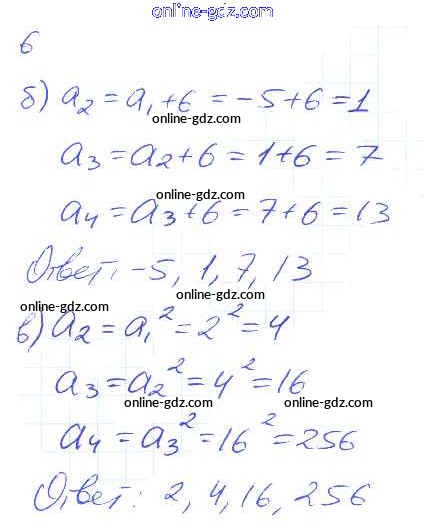 online-gdz.com
6
б) a₂ = a₁ + 6 = -5 + 6 = 1
online-gdz.com
a₃ = a₂ + 6 = 1 + 6 = 7
online-gdz.com
a₄ = a₃ + 6 = 7 + 6 = 13
online-gdz.com
Ответ: -5, 1, 7, 13
online-gdz.com
online-gdz.com
в) a₂ = a₁² = 2² = 4
online-gdz.com
a₃ = a₂² = 4² = 16
online-gdz.com
online-gdz.com
a₄ = a₃² = 16² = 256
online-gdz.com
Ответ: 2, 4, 16, 256